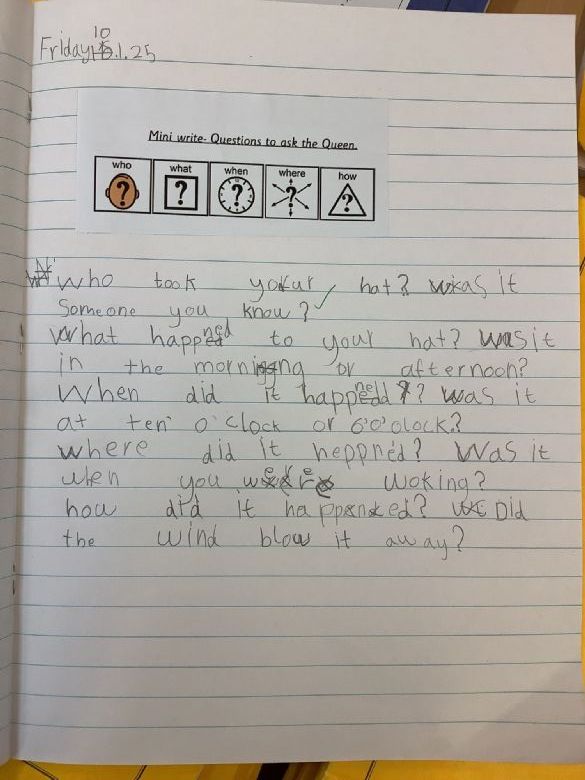 Friday 10.1.25
Mini write- Questions to ask the Queen.
who what when where how
Who took your hat? was it
Someone you know?
What happned to your hat? was it
in the morning or afternoon?
When did it happned? was it
at ten o'clock or 6'o'olock?
where did it heppned? Was it
when you were woking?
how did it happened? Did
the wind blow it away?